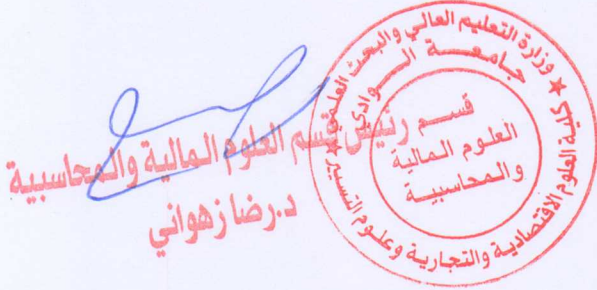 وزارة التعليم العالي والبحث العلمي
جامعة الوادي
كلية العلوم الاقتصادية والتجارية وعلوم التسيير
قسم
العلوم المالية
والمحاسبية
رئيس قسم العلوم المالية والمحاسبية
د.رضا زهواني